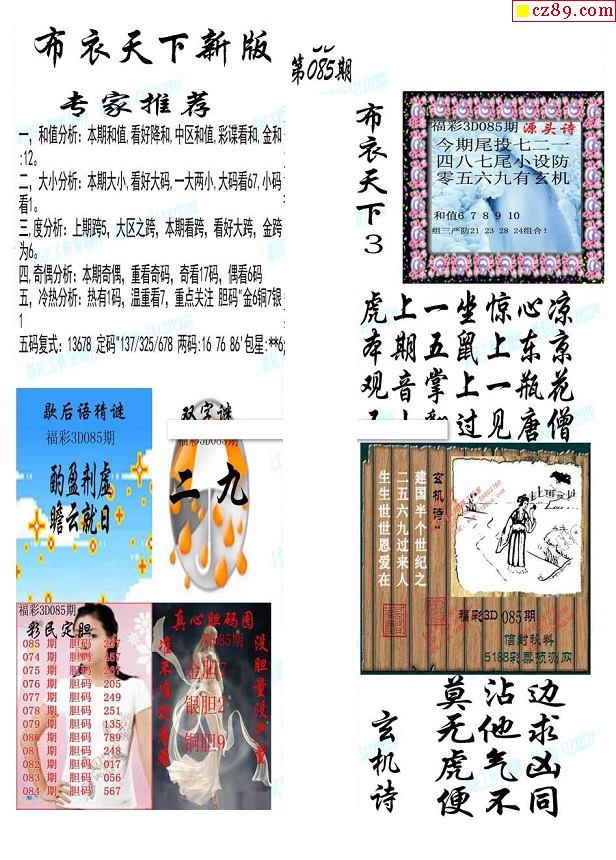 cz89.com
布衣天下新版
第085期
专家推荐
一，和值分析：本期和值，看好降和，中区和值，彩谍看和，金和
:12。
二，大小分析：本期大小，看好大码，一大两小，大码看67，小码
看1。
三，度分析：上期跨5，大区之跨，本期看跨，看好大跨，金跨
为6。
四，奇偶分析：本期奇偶，重看奇码，奇看17码，偶看6码
五，冷热分析：热有1码，温重看7，重点关注 胆码"金6铜7银
1
五码复式：13678 定码"137/325/678 两码:16 76 86'包星:**6;
布衣天下3
福彩3D085期 源头诗
今期尾投七二一
四八七尾小设防
零五六九有玄机
和值6 7 8 9 10
组三严防21 23 28 24组合！
虎上一坐惊心凉
本期五鼠上东京
观音掌上一瓶花
过见唐僧
歇后语猜谜
福彩3D085期
酌盈剂虚
瞻云就日
双字谜
福彩3D085期
二九
玄机诗：
建国半个世纪之
二五六九过来人
生生世世恩爱在
福彩3D 085期
信封秘料
5188彩票预测网
福彩3D085期
彩民定胆
085 期 胆码 267
074 期 胆码 357
075 期 胆码
076 期 胆码 205
077 期 胆码 249
078 期 胆码 251
079 期 胆码 135
080 期 胆码 789
081 期 胆码 248
082 期 胆码 017
083 期 胆码 056
084 期 胆码 567
真心胆码图
第085期
准不准你看看
没胆量没产量
金胆7
银胆2
铜胆9
玄机诗
莫沾边
无他求
虎气凶
便不同